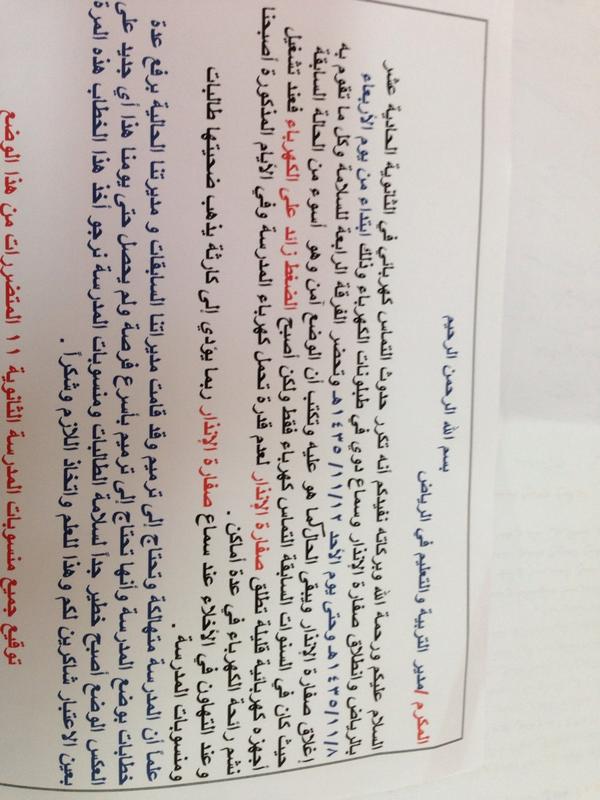 بسم الله الرحمن الرحيم
المكرم /مدير التربية والتعليم في الرياض
السلام عليكم ورحمة الله وبركاته نفيدكم أنه تكرر حدوث التماس كهربائي في الثانوية الحادية عشر
بالرياض وانطلاق صفارة الإنذار وسماع دوي في طبلونات الكهرباء وذلك ابتداء من يوم الأربعاء
١٤٣٥/١١/٨هـ وحتى يوم الأحد ١٤٣٥/١١/١٢هـ وتحضر الفرقة الرابعة للسلامة وكل ما تقوم به
إغلاق صفارة الإنذار ويبقى الحال لما هو عليه وتكتب أن الوضع آمن وهو أسوء من الحالة السابقة
حيث كان في السنوات السابقة التماس كهرباء فقط ولكن أصبح الضغط زائد على الكهرباء فعند تشغيل
أجهزه كهربائية قليلة تطلق صفارة الإنذار لعدم قدرة تحمل كهرباء المدرسة وفي الأيام المذكورة أصبحنا
نشم رائحة الكهرباء في عدة أماكن .
وعند التهاون في الأخلاء عند سماع صفارة الإنذار ربما يؤدي إلى كارثة يذهب ضحيتها طالبات
ومنسوبات المدرسة .
علماً أن المدرسة متهالكة وتحتاج إلى ترميم وقد قامت مديراتنا السابقات و مديرتنا الحالية برفع عدة
خطابات بوضع المدرسة وأنها تحتاج إلى ترميم بأسرع فرصة ولم يحصل حتى يومنا هذا أي جديد على
العكس الوضع أصبح خطير جداً لسلامة الطالبات ومنسوبات المدرسة نرجو أخذ هذا الخطاب هذه المرة
بعين الاعتبار شاكرين لكم وهذا للعلم واتخاذ اللازم وشكراً .
توقيع جميع منسوبات المدرسة الثانوية ١١ المتضررات من هذا الوضع